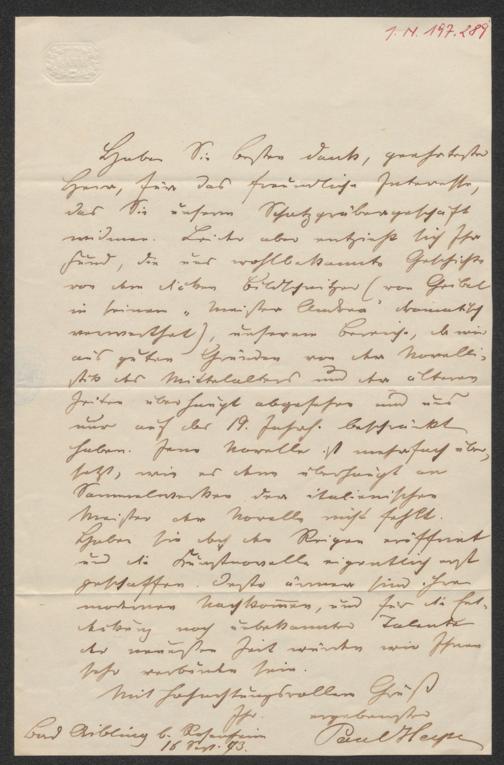 I. N. 197.289
Haben Sie besten Dank, geehrtester
Herr, für das freundliche Interesse,
das Sie unserm Schatzgräbergeschäft
widmen. Leider aber entzieht sich Ihr
Fund, die uns wohlbekannte Geschichte
von dem dicken Bildschnitzer (von Geibel
in seinem "Meister Andrea" dramatisch
verwerthet), unserem Bereich, da wir
aus guten Gründen von der Novelli-
stik des Mittelalters und der älteren
Zeiten überhaupt abgesehen und uns
nur auf das 19. Jahrh. beschränkt
haben. Jene Novelle ist mehrfach über-
setzt, wie es denn überhaupt an
Sammelwerken der italienischen
Meister der Novelle nicht fehlt.
Haben sie doch den Reigen eröffnet
und die Kunstnovelle eigentlich erst
geschaffen. Desto ärmer sind ihre
modernen Nachkommen, und für die Ent-
deckung noch unbekannter Talente
der neuesten Zeit würden wir Ihnen
sehr verbunden sein.
Mit hochachtungsvollem Gruß
Ihr ergebenster
Paul Heyse
Bad Aibling b. Rosenheim
16 Sept. 73.